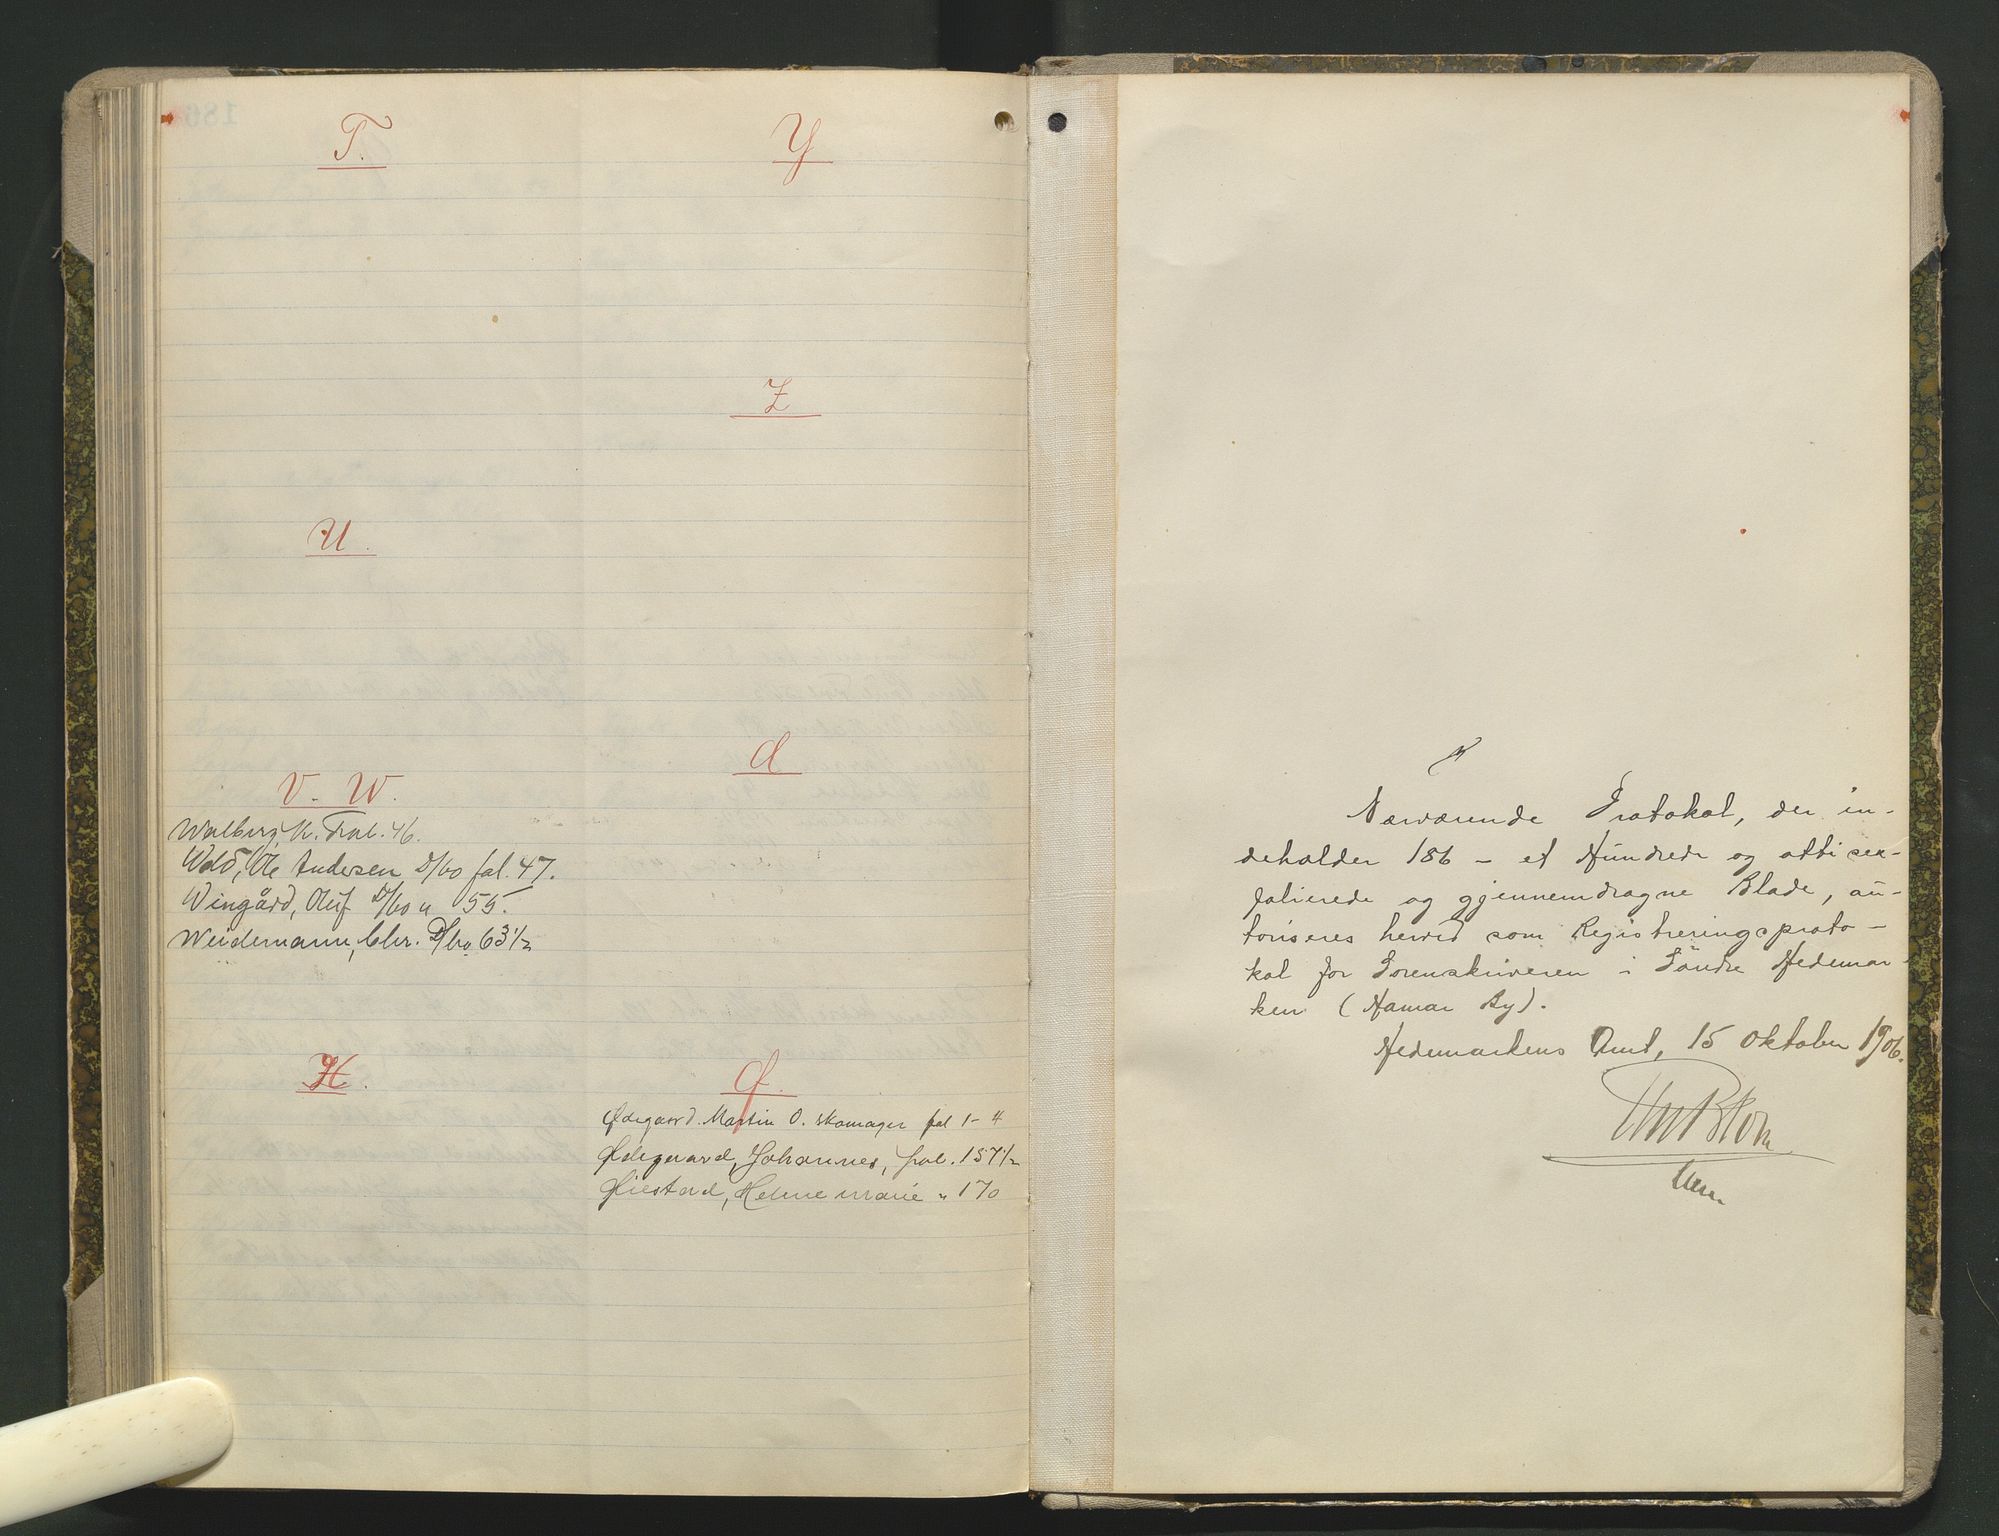 T.
U.
V. W.
Walberg, K. Fol. 46.
Wold, Ole Andersen D/bo fol. 47.
Wingård, Oluf D/bo " 55.
Weidemann, Chr. D/bo 63 1/2
Y
Z
Ø
Ødegaard Martin O. skomager fol 1-4
Ødegaard, Johannes, fol. 157 1/2
Øiestad, Helene Marie " 170
Nærværende Protokol, der in-
deholder 186 - et Hundrede og otti sex-
folierede og gjennemdragne Blade, au-
toriseres herved som Registreringsproto-
kol for Sorenskriveren i Søndre Hedemar-
ken (Hamar By).
Hedemarkens Amt, 15 Oktober 1906.